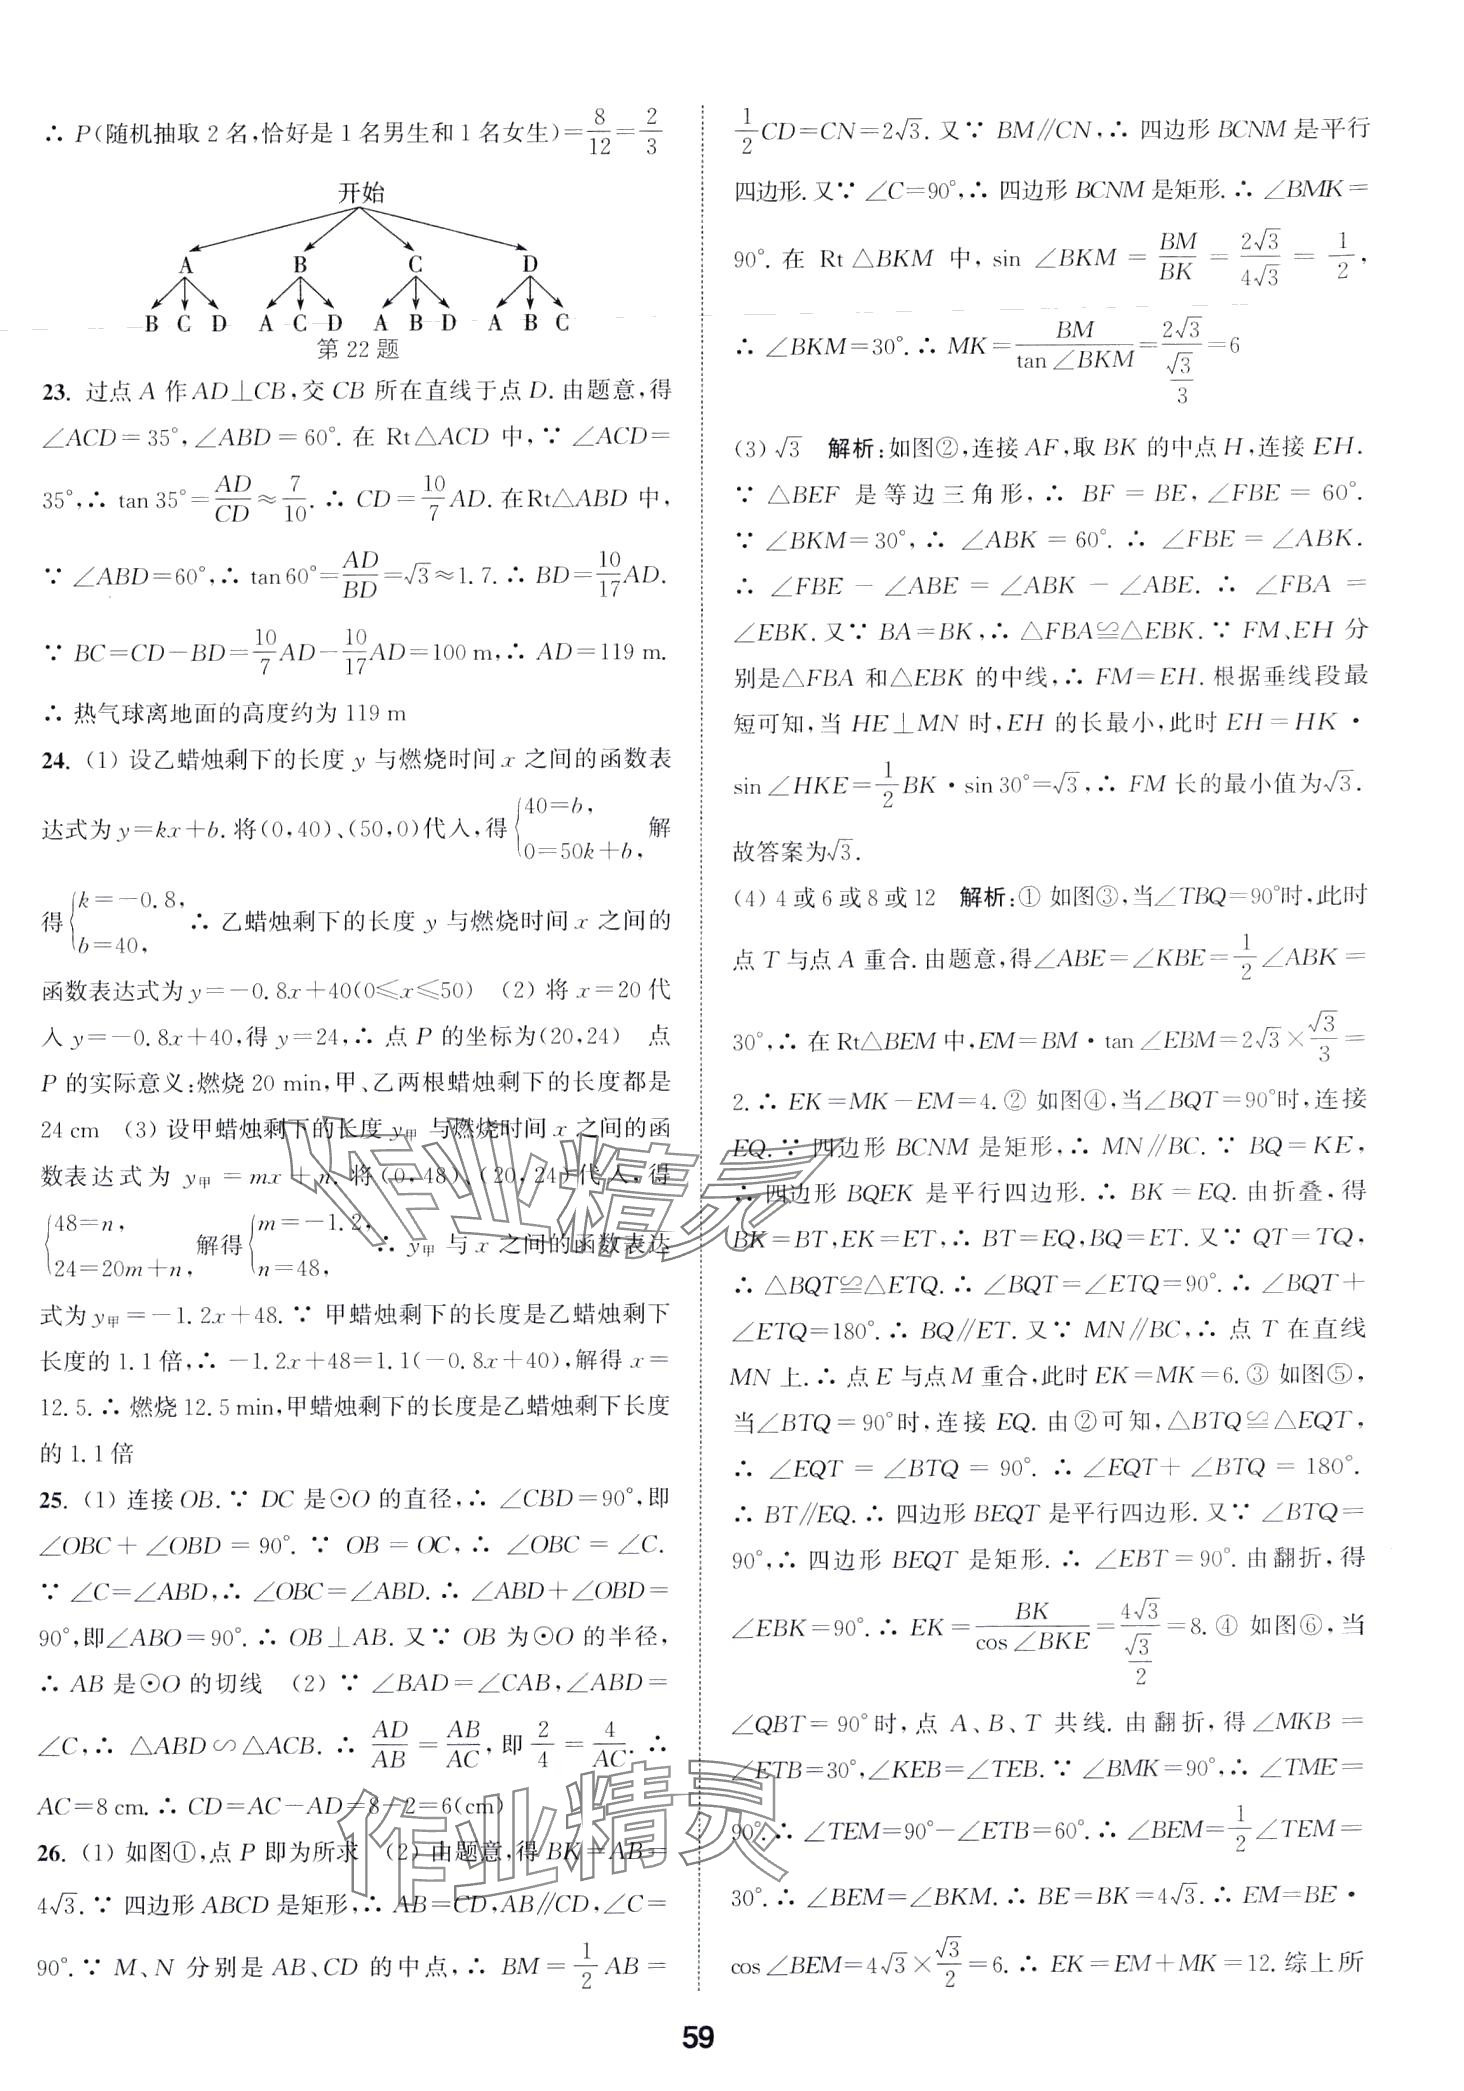 ∴ P(随机抽取 2 名,恰好是 1 名男生和 1 名女生)=8/12=2/3
开始
A B C D
B C D A C D A B D A B C
第 22 题
23. 过点 A 作 AD⊥CB,交 CB 所在直线于点 D. 由题意,得
∠ACD=35°,∠ABD=60°. 在 Rt△ACD 中,∵ ∠ACD=
35°,∴ tan 35°=AD/CD≈7/10. ∴ CD=10/7AD. 在Rt△ABD 中,
∵ ∠ABD=60°,∴ tan60°=AD/BD=√3≈1.7. ∴ BD=10/17AD.
∵ BC=CD−BD=10/7AD−10/17AD=100 m,∴ AD=119 m.
∴ 热气球离地面的高度约为 119 m
24. (1) 设乙蜡烛剩下的长度 y 与燃烧时间 x 之间的函数表
达式为 y=kx+b. 将(0,40)、(50,0)代入,得{40=b, 0=50k+b, 解
得{k=−0.8, b=40, ∴ 乙蜡烛剩下的长度 y 与燃烧时间 x 之间的
函数表达式为 y=−0.8x+40(0≤x≤50) (2) 将 x=20 代
入 y=−0.8x+40,得 y=24,∴ 点 P 的坐标为(20,24) 点
P 的实际意义:燃烧 20 min,甲、乙两根蜡烛剩下的长度都是
24 cm (3) 设甲蜡烛剩下的长度 y甲 与燃烧时间 x 之间的函
数表达式为 y甲=mx+n. 将(0,48)、(20,24)代入,得
{48=n, 24=20m+n, 解得{m=−1.2, n=48, ∴ y甲 与 x 之间的函数表达
式为 y甲=−1.2x+48. ∵ 甲蜡烛剩下的长度是乙蜡烛剩下
长度的 1.1 倍,∴ −1.2x+48=1.1(−0.8x+40),解得 x=
12.5. ∴ 燃烧 12.5 min,甲蜡烛剩下的长度是乙蜡烛剩下长度
的 1.1 倍
25. (1) 连接 OB. ∵ DC 是⊙O 的直径,∴ ∠CBD=90°,即
∠OBC+∠OBD=90°. ∵ OB=OC,∴ ∠OBC=∠C.
∵ ∠C=∠ABD,∴ ∠OBC=∠ABD. ∴ ∠ABD+∠OBD=
90°,即∠ABO=90°. ∴ OB⊥AB. 又∵ OB 为⊙O 的半径,
∴ AB 是⊙O 的切线 (2) ∵ ∠BAD=∠CAB,∠ABD=
∠C,∴ △ABD∽△ACB. ∴ AD/AB=AB/AC,即2/4=4/AC. ∴
AC=8 cm. ∴ CD=AC−AD=8−2=6(cm)
26. (1) 如图①,点 P 即为所求 (2) 由题意,得 BK=AB=
4√3. ∵ 四边形 ABCD 是矩形,∴ AB=CD,AB∥CD,∠C=
90°. ∵ M、N 分别是 AB、CD 的中点,∴ BM=1/2AB=
1/2CD=CN=2√3. 又∵ BM∥CN,∴ 四边形 BCNM 是平行
四边形. 又∵ ∠C=90°,∴ 四边形 BCNM 是矩形. ∴ ∠BMK=
90°. 在 Rt△BKM 中,sin ∠BKM=BM/BK=2√3/4√3=1/2,
∴ ∠BKM=30°. ∴ MK=BM/tan∠BKM=2√3/(√3/3)=6
(3) √3 解析:如图②,连接 AF,取 BK 的中点 H,连接 EH.
∵ △BEF 是等边三角形,∴ BF=BE,∠FBE=60°.
∵ ∠BKM=30°,∴ ∠ABK=60°. ∴ ∠FBE=∠ABK.
∴ ∠FBE−∠ABE=∠ABK−∠ABE. ∴ ∠FBA=
∠EBK. 又∵ BA=BK,∴ △FBA≌△EBK. ∵ FM、EH 分
别是△FBA 和△EBK 的中线,∴ FM=EH. 根据垂线段最
短可知,当 HE⊥MN 时,EH 的长最小,此时 EH=HK·
sin∠HKE=1/2BK·sin30°=√3,∴ FM 长的最小值为√3.
故答案为√3.
(4) 4 或 6 或 8 或 12 解析:① 如图③,当∠TBQ=90°时,此时
点 T 与点 A 重合. 由题意,得∠ABE=∠KBE=1/2∠ABK=
30°,∴ 在 Rt△BEM 中,EM=BM·tan∠EBM=2√3×√3/3=
2. ∴ EK=MK−EM=4. ② 如图④,当∠BQT=90°时,连接
EQ. ∵ 四边形 BCNM 是矩形,∴ MN∥BC. ∵ BQ=KE,
∴ 四边形 BQEK 是平行四边形. ∴ BK=EQ. 由折叠,得
BK=BT,EK=ET,∴ BT=EQ,BQ=ET. 又∵ QT=TQ,
∴ △BQT≌△ETQ. ∴ ∠BQT=∠ETQ=90°. ∴ ∠BQT+
∠ETQ=180°. ∴ BQ∥ET. 又∵ MN∥BC,∴ 点 T 在直线
MN 上. ∴ 点 E 与点 M 重合,此时 EK=MK=6. ③ 如图⑤,
当∠BTQ=90°时,连接 EQ. 由②可知,△BTQ≌△EQT,
∴ ∠EQT=∠BTQ=90°. ∴ ∠EQT+∠BTQ=180°.
∴ BT∥EQ. ∴ 四边形 BEQT 是平行四边形. 又∵ ∠BTQ=
90°,∴ 四边形 BEQT 是矩形. ∴ ∠EBT=90°. 由翻折,得
∠EBK=90°. ∴ EK=BK/cos∠BKE=4√3/(√3/2)=8. ④ 如图⑥,当
∠QBT=90°时,点 A、B、T 共线. 由翻折,得∠MKB=
∠ETB=30°,∠KEB=∠TEB. ∵ ∠BMK=∠TME=
90°,∴ ∠TEM=90°−∠ETB=60°. ∴ ∠BEM=1/2∠TEM=
30°. ∴ ∠BEM=∠BKM. ∴ BE=BK=4√3. ∴ EM=BE·
cos∠BEM=4√3×√3/2=6. ∴ EK=EM+MK=12. 综上所
作业精灵
作业精灵
59